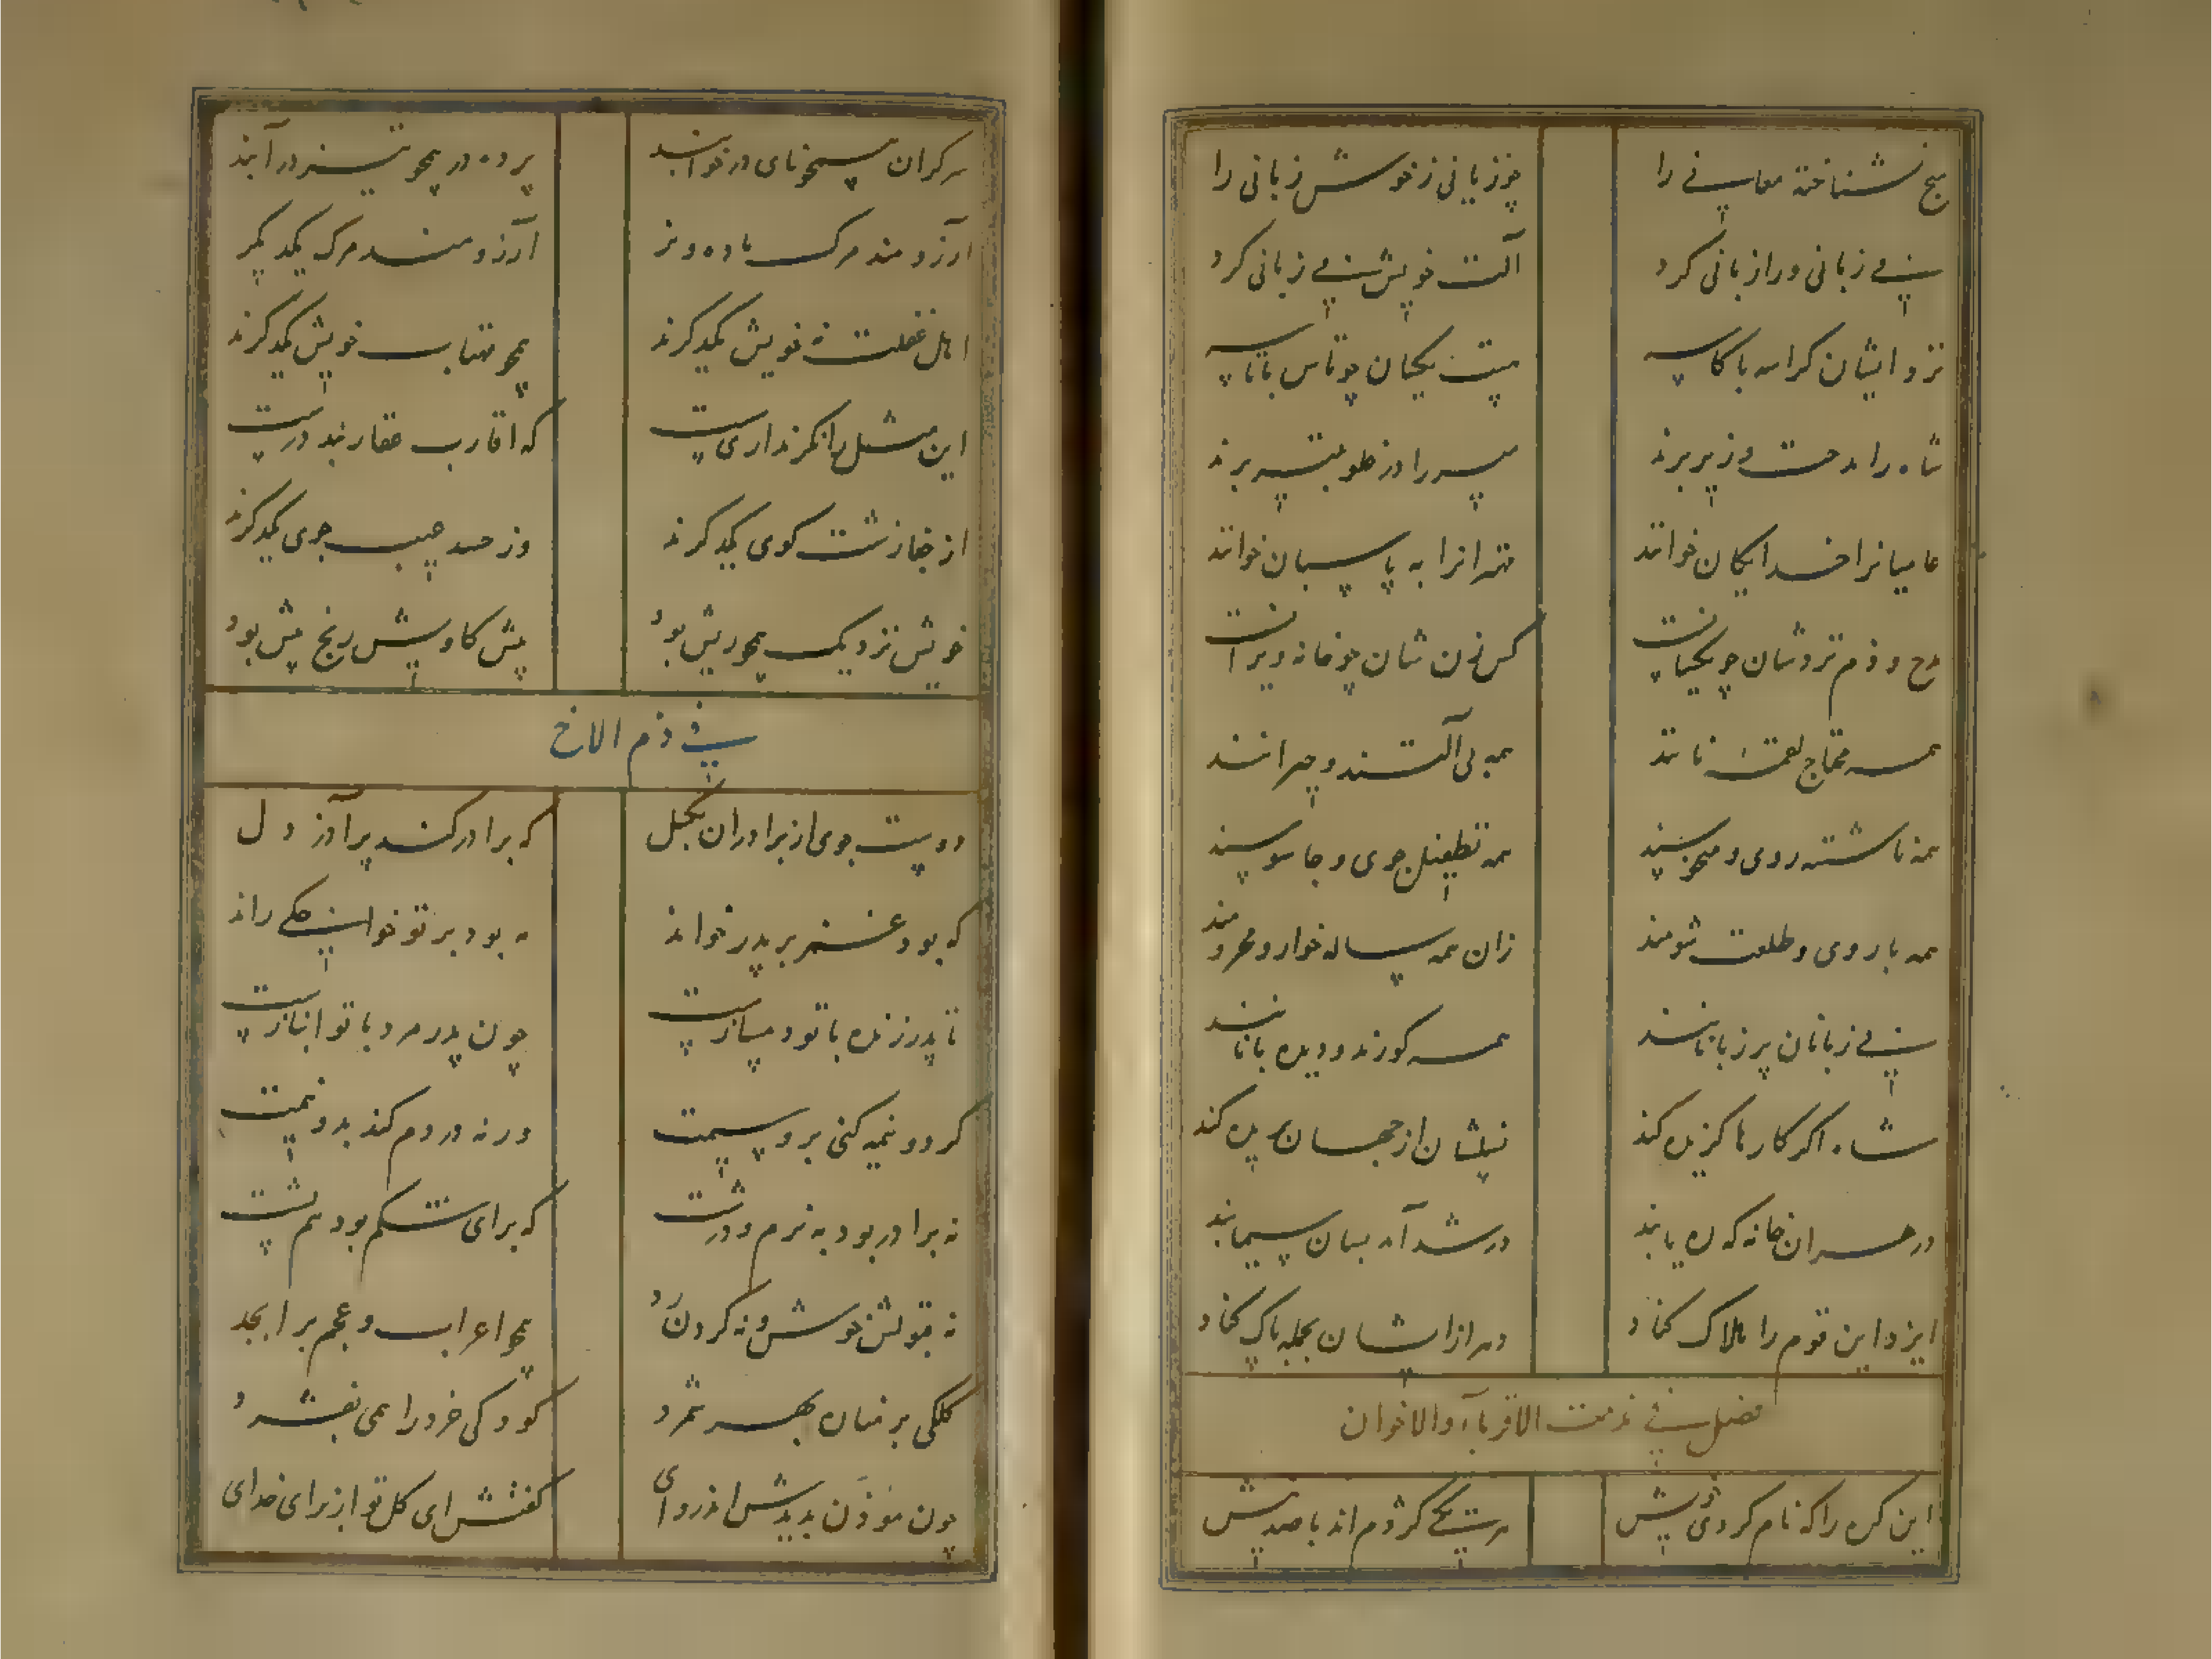 هیچ نشناخته معانی را    چو زبانی ز خوش زبانی را
بی زبانی ورا زبانی کرد    آلت خویش بی زبانی کرد
نزد ایشان کراسه با کاسه    هست یکسان چو تاس با تاسه
شاه را مدحت وزیر برند    میر را در طویله
عامیانرا خدایگان خوانند    مهترانرا به پاسبان خوانند
مدح و ذم نزدشان چو یکسانست    کس زن شان چو خانه ویرانست
همه محتاج لقمه نانند    همه بی آلتند و حیرانند
همه ناشسته روی و منحوسند    همه تطفیل جوی و جاسوسند
همه با روی و طلعت شومند    زان همه ساله خوار و محرومند
بی زبانان پر زبانانند    همه کورند و دیده بانانند
شاه اگر کارها گزیده کند    نسلشان از جهان بریده کند
در حران خانه که ره یابند    در شد آمد بسان سیمابند
ایزد این قوم را هلاک کناد    دهر از ایشان بجمله پاک کناد
فصل فی مذمت الاقرباء والاخوان
این گره را که نام کردی خویش    هر یکی کژدم اند با صد نیش
سر گران همچو نای در خوابند    پرده در همچو تیز در آبند
آرزومند مرگ یکدیگر
اهل غفلت نه خویش یکدگرند    همچو مهتاب خویش یکدگرند
این مثل را نگر نداری سست    که اقارب عقاربند درست
از جفا زشت گوی یکدگرند    وز حسد عیب جوی یکدگرند
خویش نزدیک همچو ریش بود    بیش کاویش رنج بیش بود
فی ذم الاخ
دوست جوی از برادران بگسل    که برادر کند پر آذر دل
که بود عنصر بر پدر خواند    نه بود بر تو خواجگی راند
تا پدر زنده با تو دمسازست    چون پدر مرد با تو انبازست
گر دو نیمه کنی برو سیمت    ورنه در دم کند بدو نیمت
نه برادر بود به نرم و درشت    که برای شکم بود هم پشت
نه قبولش خوش و نه کردن رد    همچو اعراب و عجم بر ابجد
گلکی بر مناره بهر ثمرد    کودکی خرد را همی بفشرد
چون مؤذن بدیدش اندر وای    گفتش ای کل تو از برای خدای